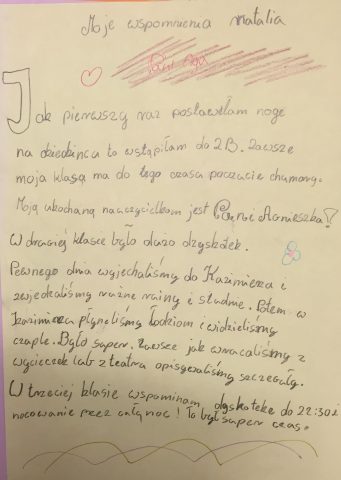 Moje wspomnienia Natalia
Pani Aga
Jak pierwszy raz postawiłam nogę
na dziedzińca to wstąpiłam do 2B. Zawsze
moja klasą ma do tego czasa poczucie chumory.
Moją ukochaną nauczycielkom jest Pani Agnieszka!
W drugiej klasie było dużo dzyskotek.
Pewnego dnia wyjechaliśmy do Kazimierza i
zwjedzaliśmy różne rainy i studnie. Potem w
Kazimierza płynęliśmy łodziom i widzieliśmy
czaple. Było super. Zawsze jak wracaliśmy z
wycieczek lub z teatra opisywaliśmy szczegóły.
W trzeciej klasie wspominam dyskotekę do 22:30 i
nocowanie przez całą noc! To był super czas.